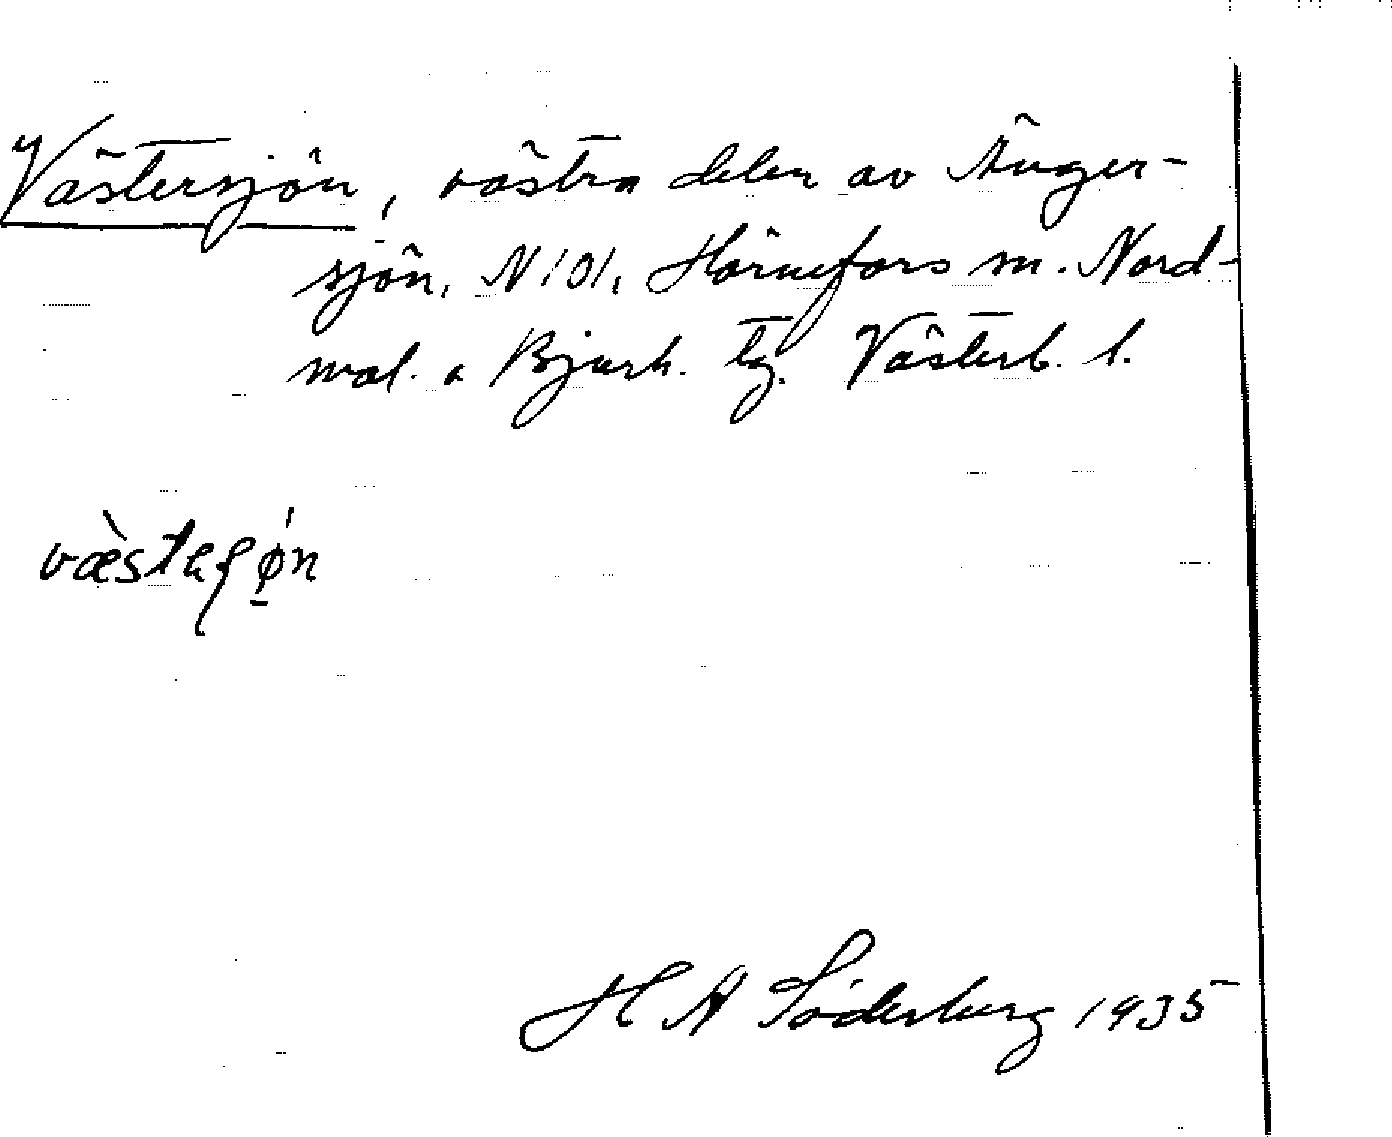 Västersjön, västra delen av Ånger-
sjön, N101, Hörnefors sn. Nord-
mal. o Bjurh. tg. Västerb. l.
væ̀stεʃǿ̱n
H A Söderberg 1935